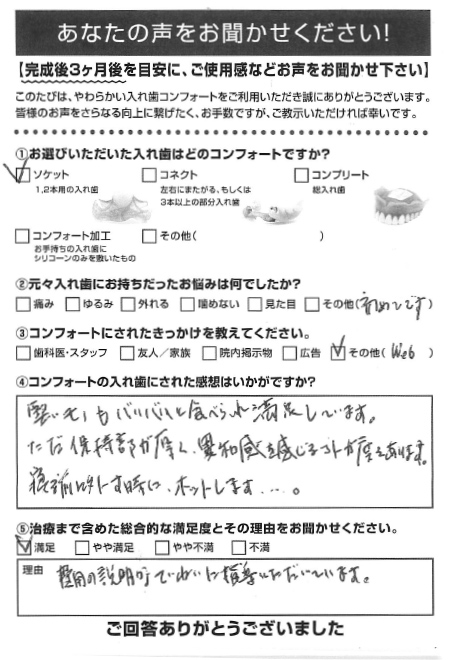 あなたの声をお聞かせください!
【完成後3ヶ月後を目安に、ご使用感などお声をお聞かせ下さい】
このたびは、やわらかい入れ歯コンフォートをご利用いただき誠にありがとうございます。
皆様のお声をさらなる向上に繋げたく、お手数ですが、ご教示いただければ幸いです。
①お選びいただいた入れ歯はどのコンフォートですか?
ソケット コネクト コンプリート
1,2本用の入れ歯 左右にまたがる、もしくは 総入れ歯
3本以上の部分入れ歯
コンフォート加工 その他( )
お手持ちの入れ歯に
シリコーンのみを敷いたもの
②元々入れ歯にお持ちだったお悩みは何でしたか?
痛み ゆるみ 外れる 噛めない 見た目 その他(初めてです)
③コンフォートにされたきっかけを教えてください。
歯科医・スタッフ 友人/家族 院内掲示物 広告 その他(Web)
④コンフォートの入れ歯にされた感想はいかがですか?
堅いモノもバリバリと食べられ満足しています。
ただ保持部が厚く、異和感を感じるコトが度々あります。
寝前に外す時に、ホットします…。
⑤治療まで含めた総合的な満足度とその理由をお聞かせください。
満足 やや満足 やや不満 不満
理由 の説明がていねいに いただいています。
ご回答ありがとうございました